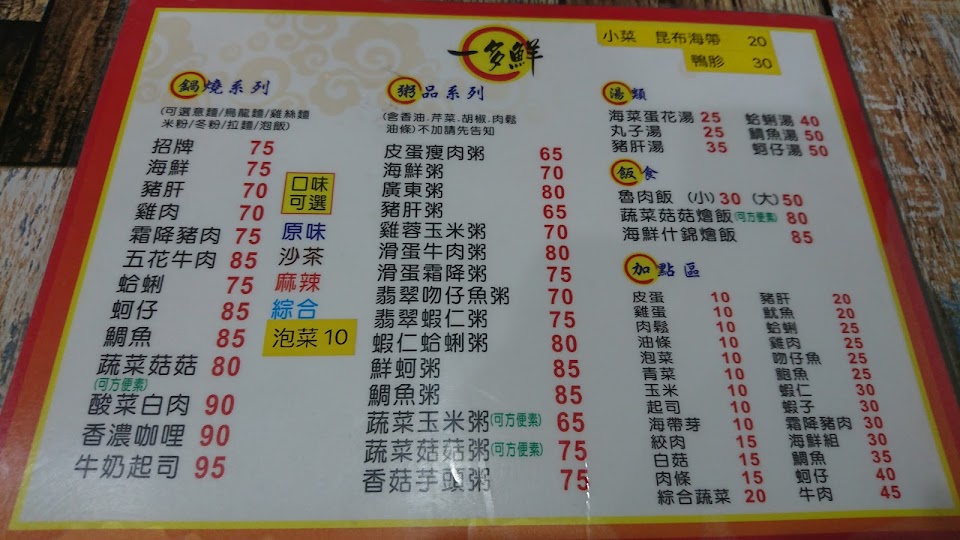 一多鮮
小菜 昆布海帶 20
鴨胗 30
鍋燒系列
(可選意麵/烏龍麵/雞絲麵
米粉/冬粉/拉麵/泡飯)
招牌 75
海鮮 75
豬肝 70
雞肉 70
霜降豬肉 75
五花牛肉 85
蛤蜊 75
蚵仔 85
鯛魚 85
蔬菜菇菇 80
(可方便素)
酸菜白肉 90
香濃咖哩 90
牛奶起司 95
口味
可選
原味
沙茶
麻辣
綜合
泡菜10
粥品系列
(含香油.芹菜.胡椒.肉鬆
油條)不加請先告知
皮蛋瘦肉粥 65
海鮮粥 70
廣東粥 80
豬肝粥 65
雞蓉玉米粥 70
滑蛋牛肉粥 80
滑蛋霜降粥 75
翡翠吻仔魚粥 70
翡翠蝦仁粥 75
蝦仁蛤蜊粥 80
鮮蚵粥 85
鯛魚粥 85
蔬菜玉米粥(可方便素) 65
蔬菜菇菇粥(可方便素) 75
香菇芋頭粥 75
湯類
海菜蛋花湯 25 蛤蜊湯 40
丸子湯 25 鯛魚湯 50
豬肝湯 35 蚵仔湯 50
飯食
魯肉飯 (小)30 (大)50
蔬菜菇菇燴飯(可方便素) 80
海鮮什錦燴飯 85
加點區
皮蛋 10 豬肝 20
雞蛋 10 魷魚 20
肉鬆 10 蛤蜊 25
油條 10 雞肉 25
泡菜 10 吻仔魚 25
青菜 10 鮑魚 25
玉米 10 蝦仁 30
起司 10 蝦子 30
海帶芽 10 霜降豬肉 30
絞肉 15 海鮮組 30
白菇 15 鯛魚 35
肉條 15 蚵仔 40
綜合蔬菜 20 牛肉 45